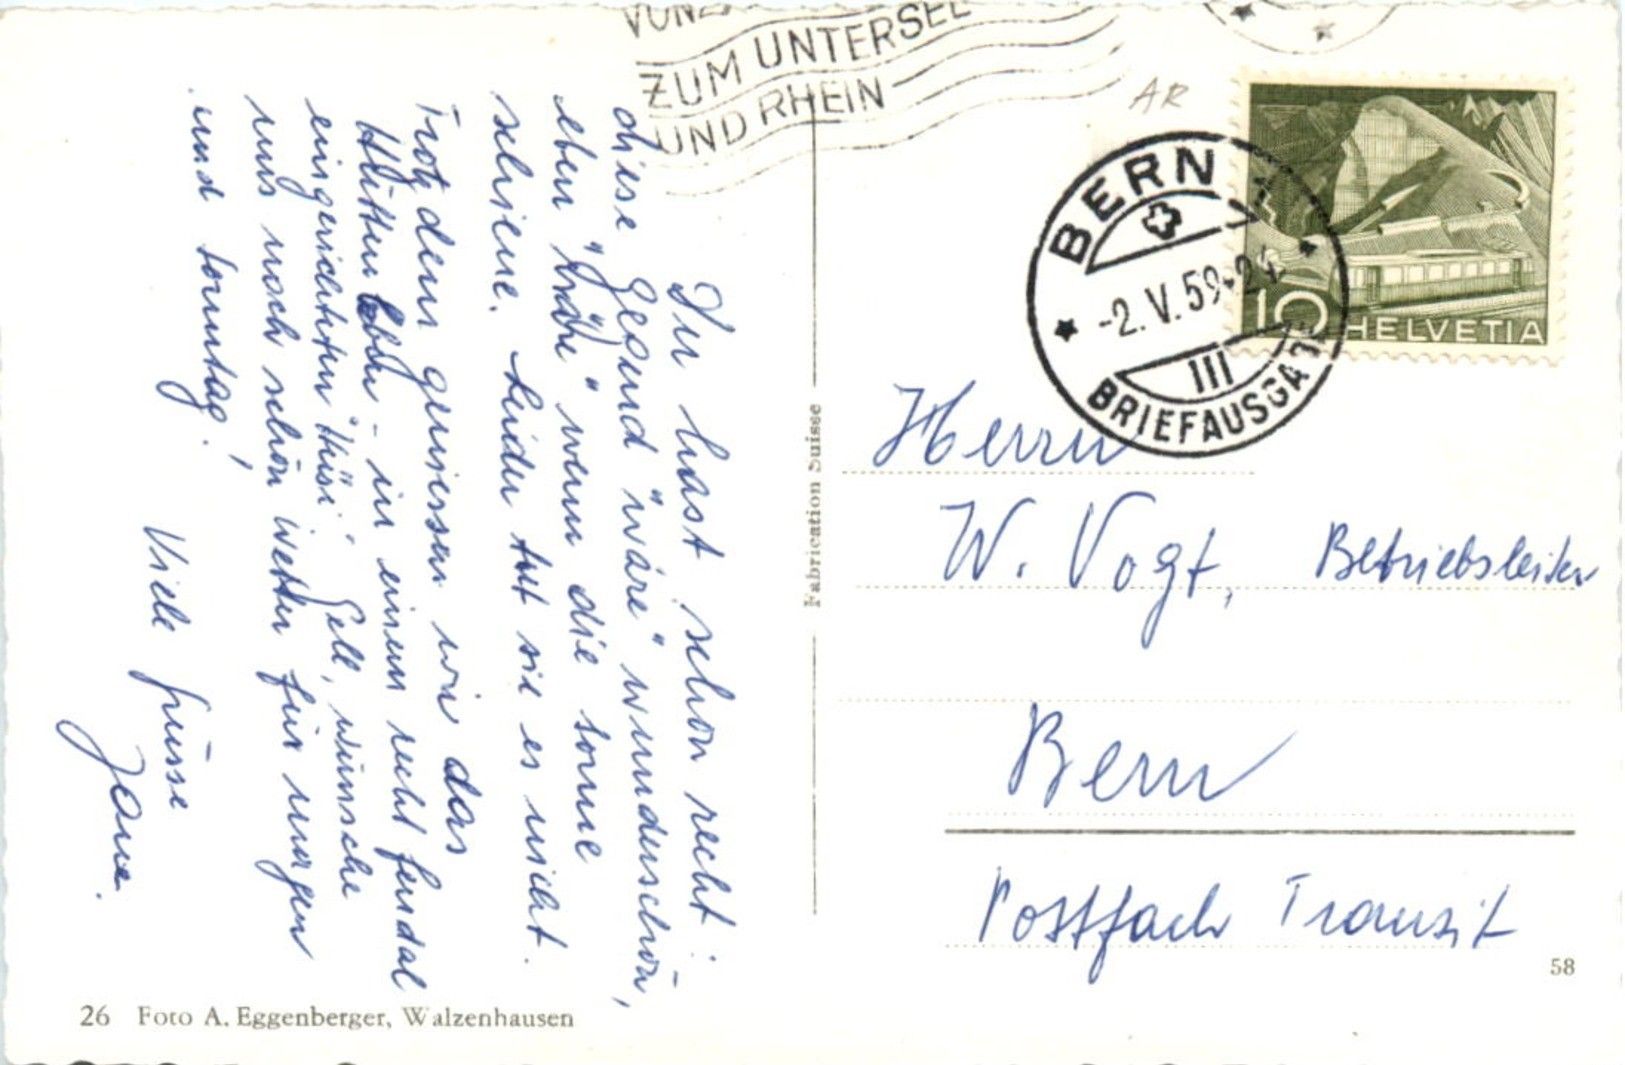 VON
ZUM UNTERSEE
UND RHEIN
AR
BERN 1
-2.V.59-24
III
BRIEFAUSGABE
10 HELVETIA
Du hast schon recht:
diese Gegend "wäre" wunderschön,
eben "wäre" wenn die Sonne
schiene. Leider tut sie es nicht.
Trotzdem geniessen wir das
Hüttenleben - in einem recht feudal
eingerichteten "Hüsi". Gell, wünsche
uns noch schön Wetter für morgen
und Sonntag!
Viele Grüsse
Fabrication Suisse
Herrn
W. Vogt, Betriebsleiter
Bern
Postfach Transit
58
26 Foto A. Eggenberger, Walzenhausen